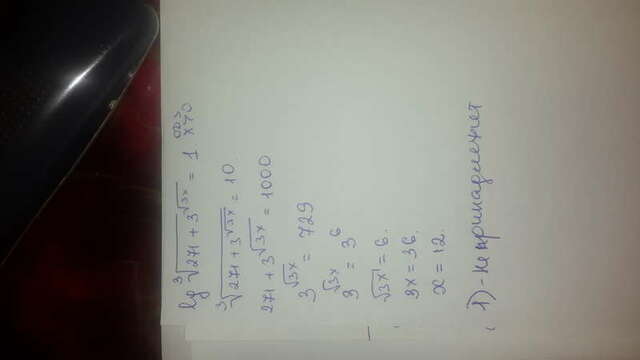 lg ∛(271 + 3^√(3x)) = 1 ОДЗ x>0
∛(271 + 3^√(3x)) = 10
271 + 3^√(3x) = 1000
3^√(3x) = 729
3^√(3x) = 3^6
√(3x) = 6.
3x = 36.
x = 12.
1) - Не принадлежит